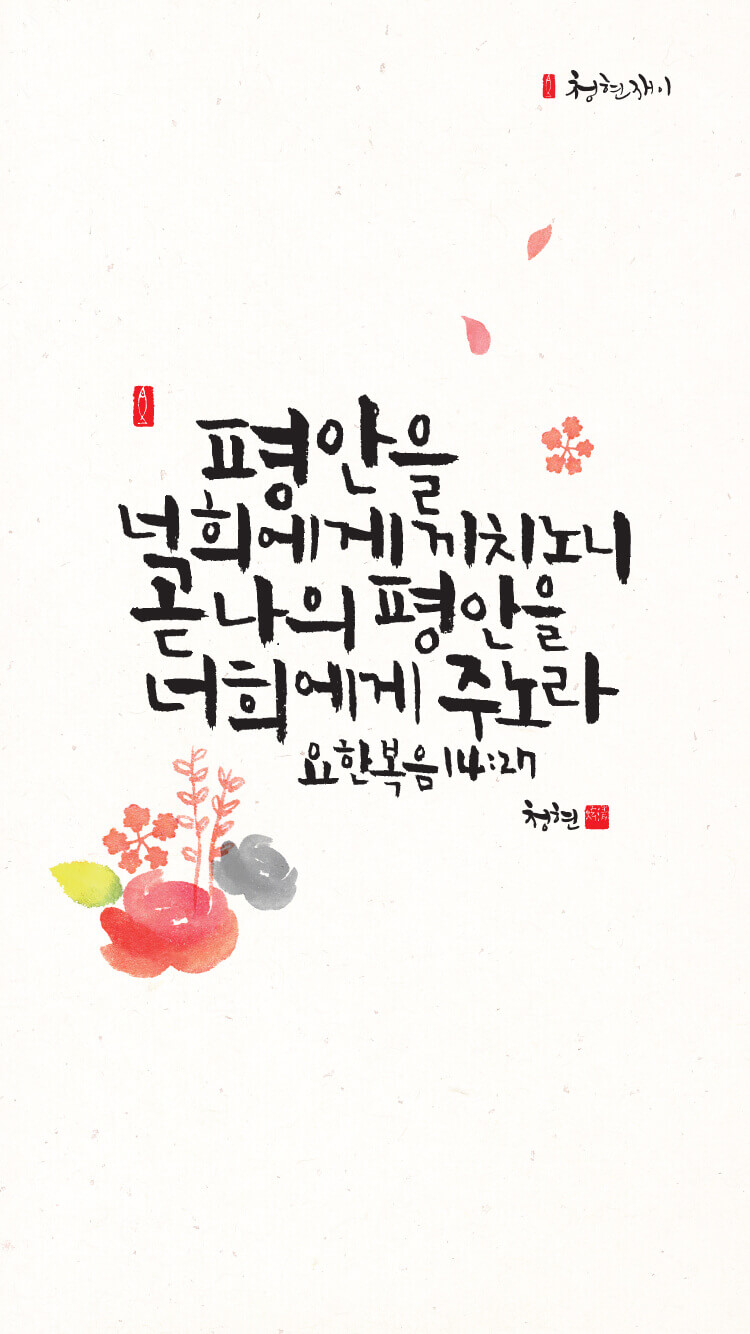 청현재이
평안을
너희에게 끼치노니
곧 나의 평안을
너희에게 주노라
요한복음 14:27
청현